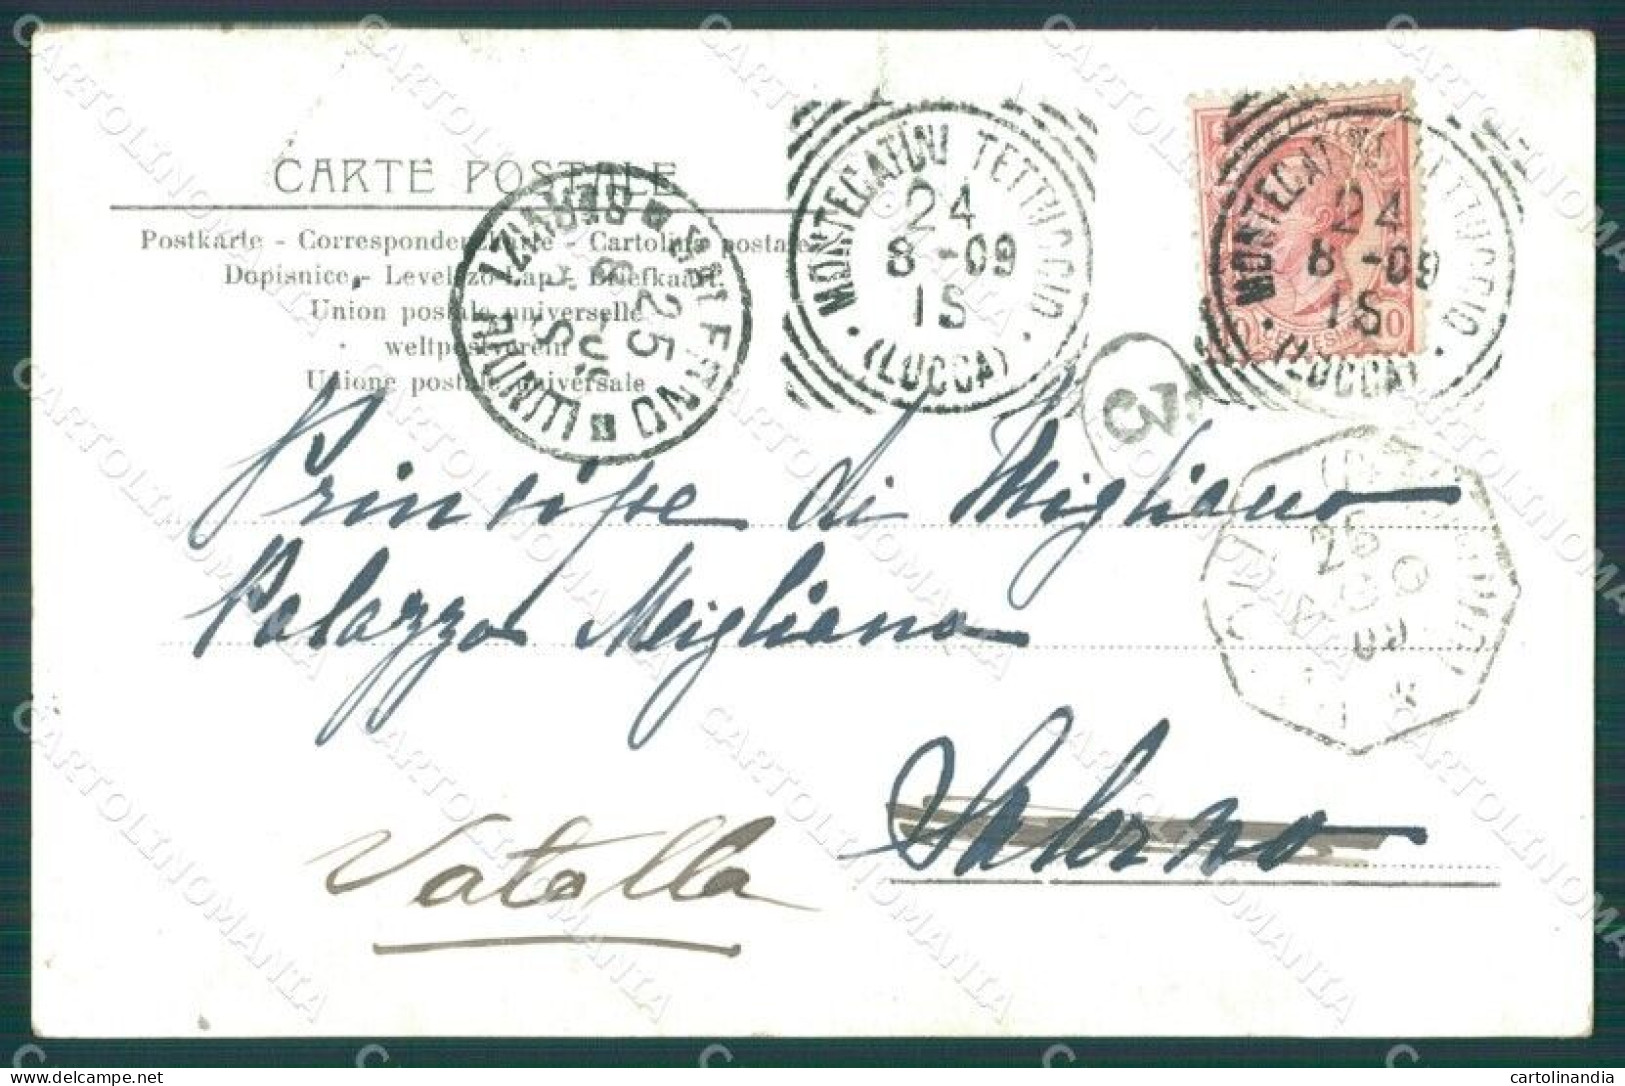 CARTE POSTALE
Postkarte - Correspondenzkarte - Cartolina postale
Dopisnice - Levelezo-Lap - Briefkaart
Union postale universelle
weltpostverein
Unione postale universale
SERVIZI RIUNITI
25
MONTECATINI TETTUCCIO
24
8 - 09
1S
(LUCCA)
MONTECATINI TETTUCCIO
24
8 - 09
1S
(LUCCA)
10
Principe di Migliano
Palazzo Migliano
Salerno
Vatolla
09
CARTOLINOMANIA
delcampe.net
cartolinandia